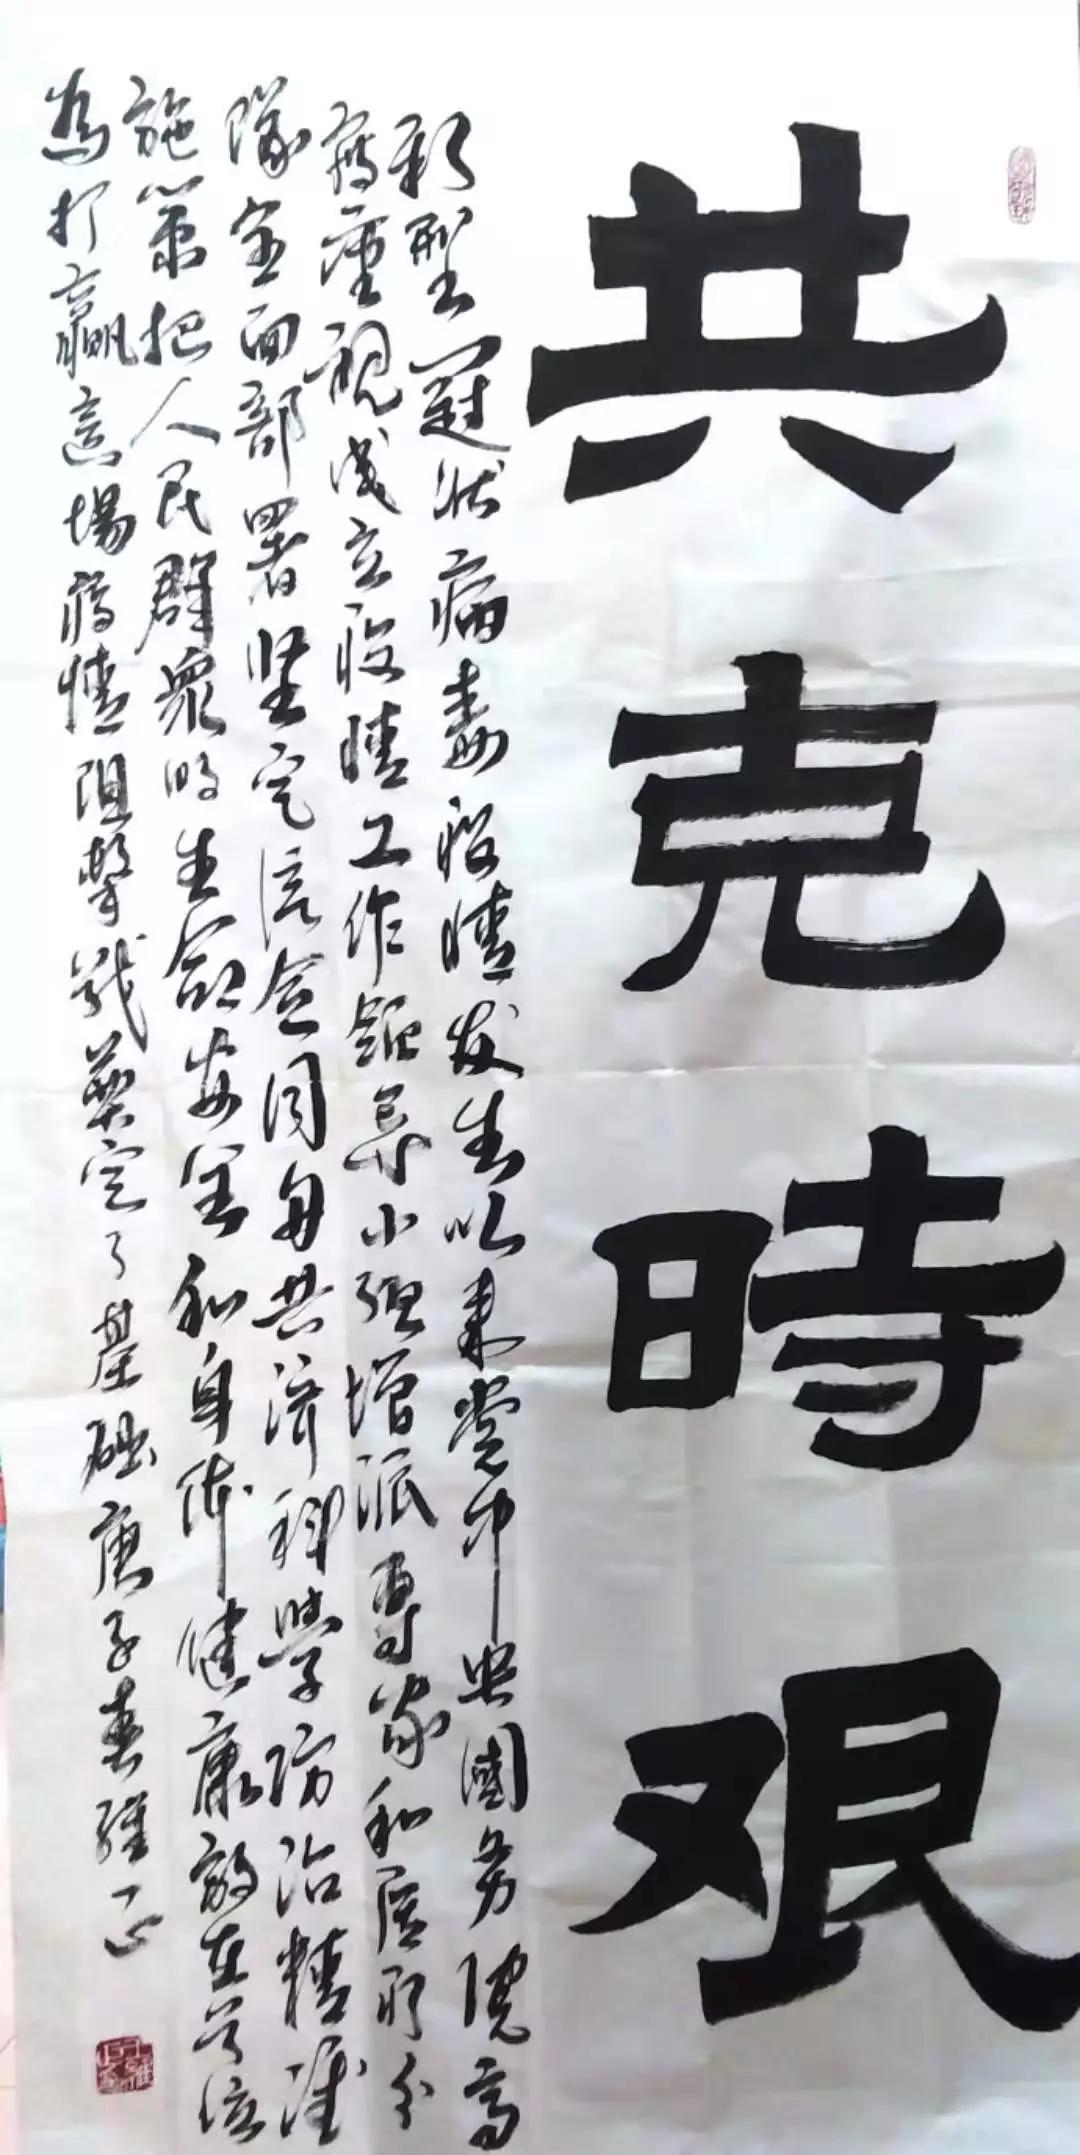 共克時艰
新型冠状病毒疫情发生以来党中央國务院高
度重视成立疫情工作領导小组增派專家和医疗分
隊全面部署坚定信念同舟共济科學防治精准
施策把人民群眾的生命安全和身体健康放在首位
為打赢這場疫情阻擊战奠定了基础庚子春維正